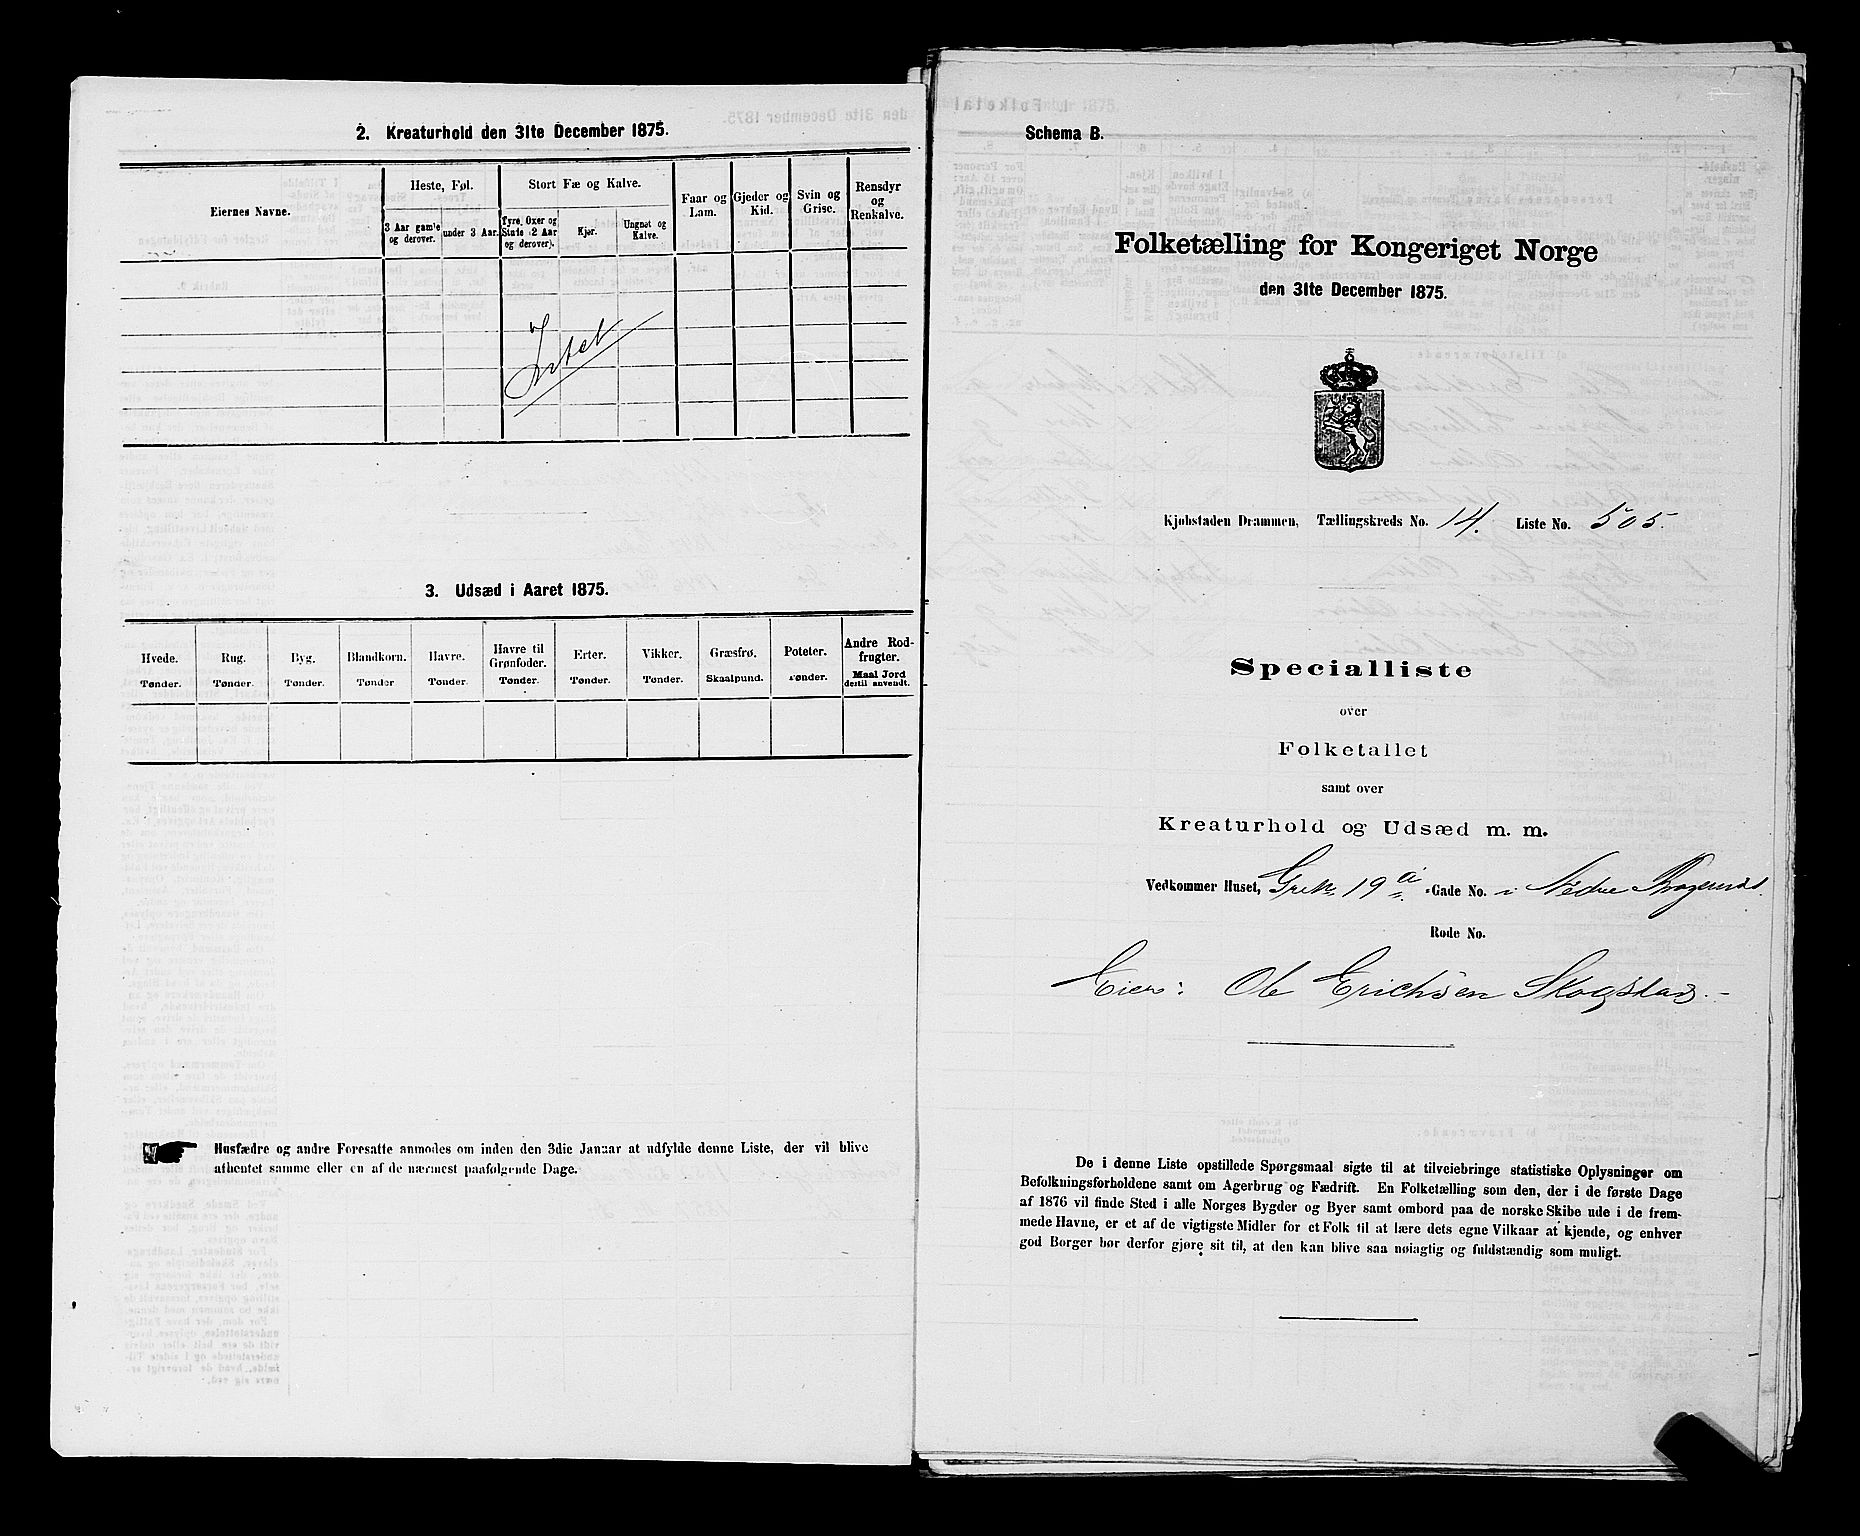 2. Kreaturhold den 31te December 1875.
Eiernes Navne.
Heste, Føl.
3 Aar gamle og derover.
under 3 Aar.
Stort Fæ og Kalve.
Tyre, Oxer og Stude (2 Aar og derover).
Kjør.
Ungnøt og Kalve.
Faar og Lam.
Gjeder og Kid.
Svin og Grise.
Rensdyr og Renkalve.
Intet
3. Udsæd i Aaret 1875.
Hvede. Tønder.
Rug. Tønder.
Byg. Tønder.
Blandkorn. Tønder
Havre. Tønder.
Havre til Grønfoder. Tønder.
Erter. Tønder.
Vikker. Tønder.
Græsfrø. Skaalpund.
Poteter. Tønder.
Andre Rodfrugter. Maal Jord dertil anvendt.
Husfædre og andre Foresatte anmodes om inden den 3die Januar at udfylde denne Liste, der vil blive
afhentet samme eller en af de nærmest paafølgende Dage.
Schema B.
Folketælling for Kongeriget Norge
den 31te December 1875.
Kjøbstaden Drammen, Tællingskreds No. 14. Liste No. 505.
Specialliste
over
Folketallet
samt over
Kreaturhold og Udsæd m. m.
Vedkommer Huset, 19 a Gade No. i Nedre Bragernæs
Rode No.
Eier: Ole Erichsen Skogstad.
De i denne Liste opstillede Spørgsmaal sigte til at tilveiebringe statistiske Oplysninger om
Befolkningsforholdene samt om Agerbrug og Fædrift. En Folketælling som den, der i de første Dage
af 1876 vil finde Sted i alle Norges Bygder og Byer samt ombord paa de norske Skibe ude i de frem-
mede Havne, er et af de vigtigste Midler for et Folk til at lære dets egne Vilkaar at kjende, og enhver
god Borger bør derfor gjøre sit til, at den kan blive saa nøiagtig og fuldstændig som muligt.